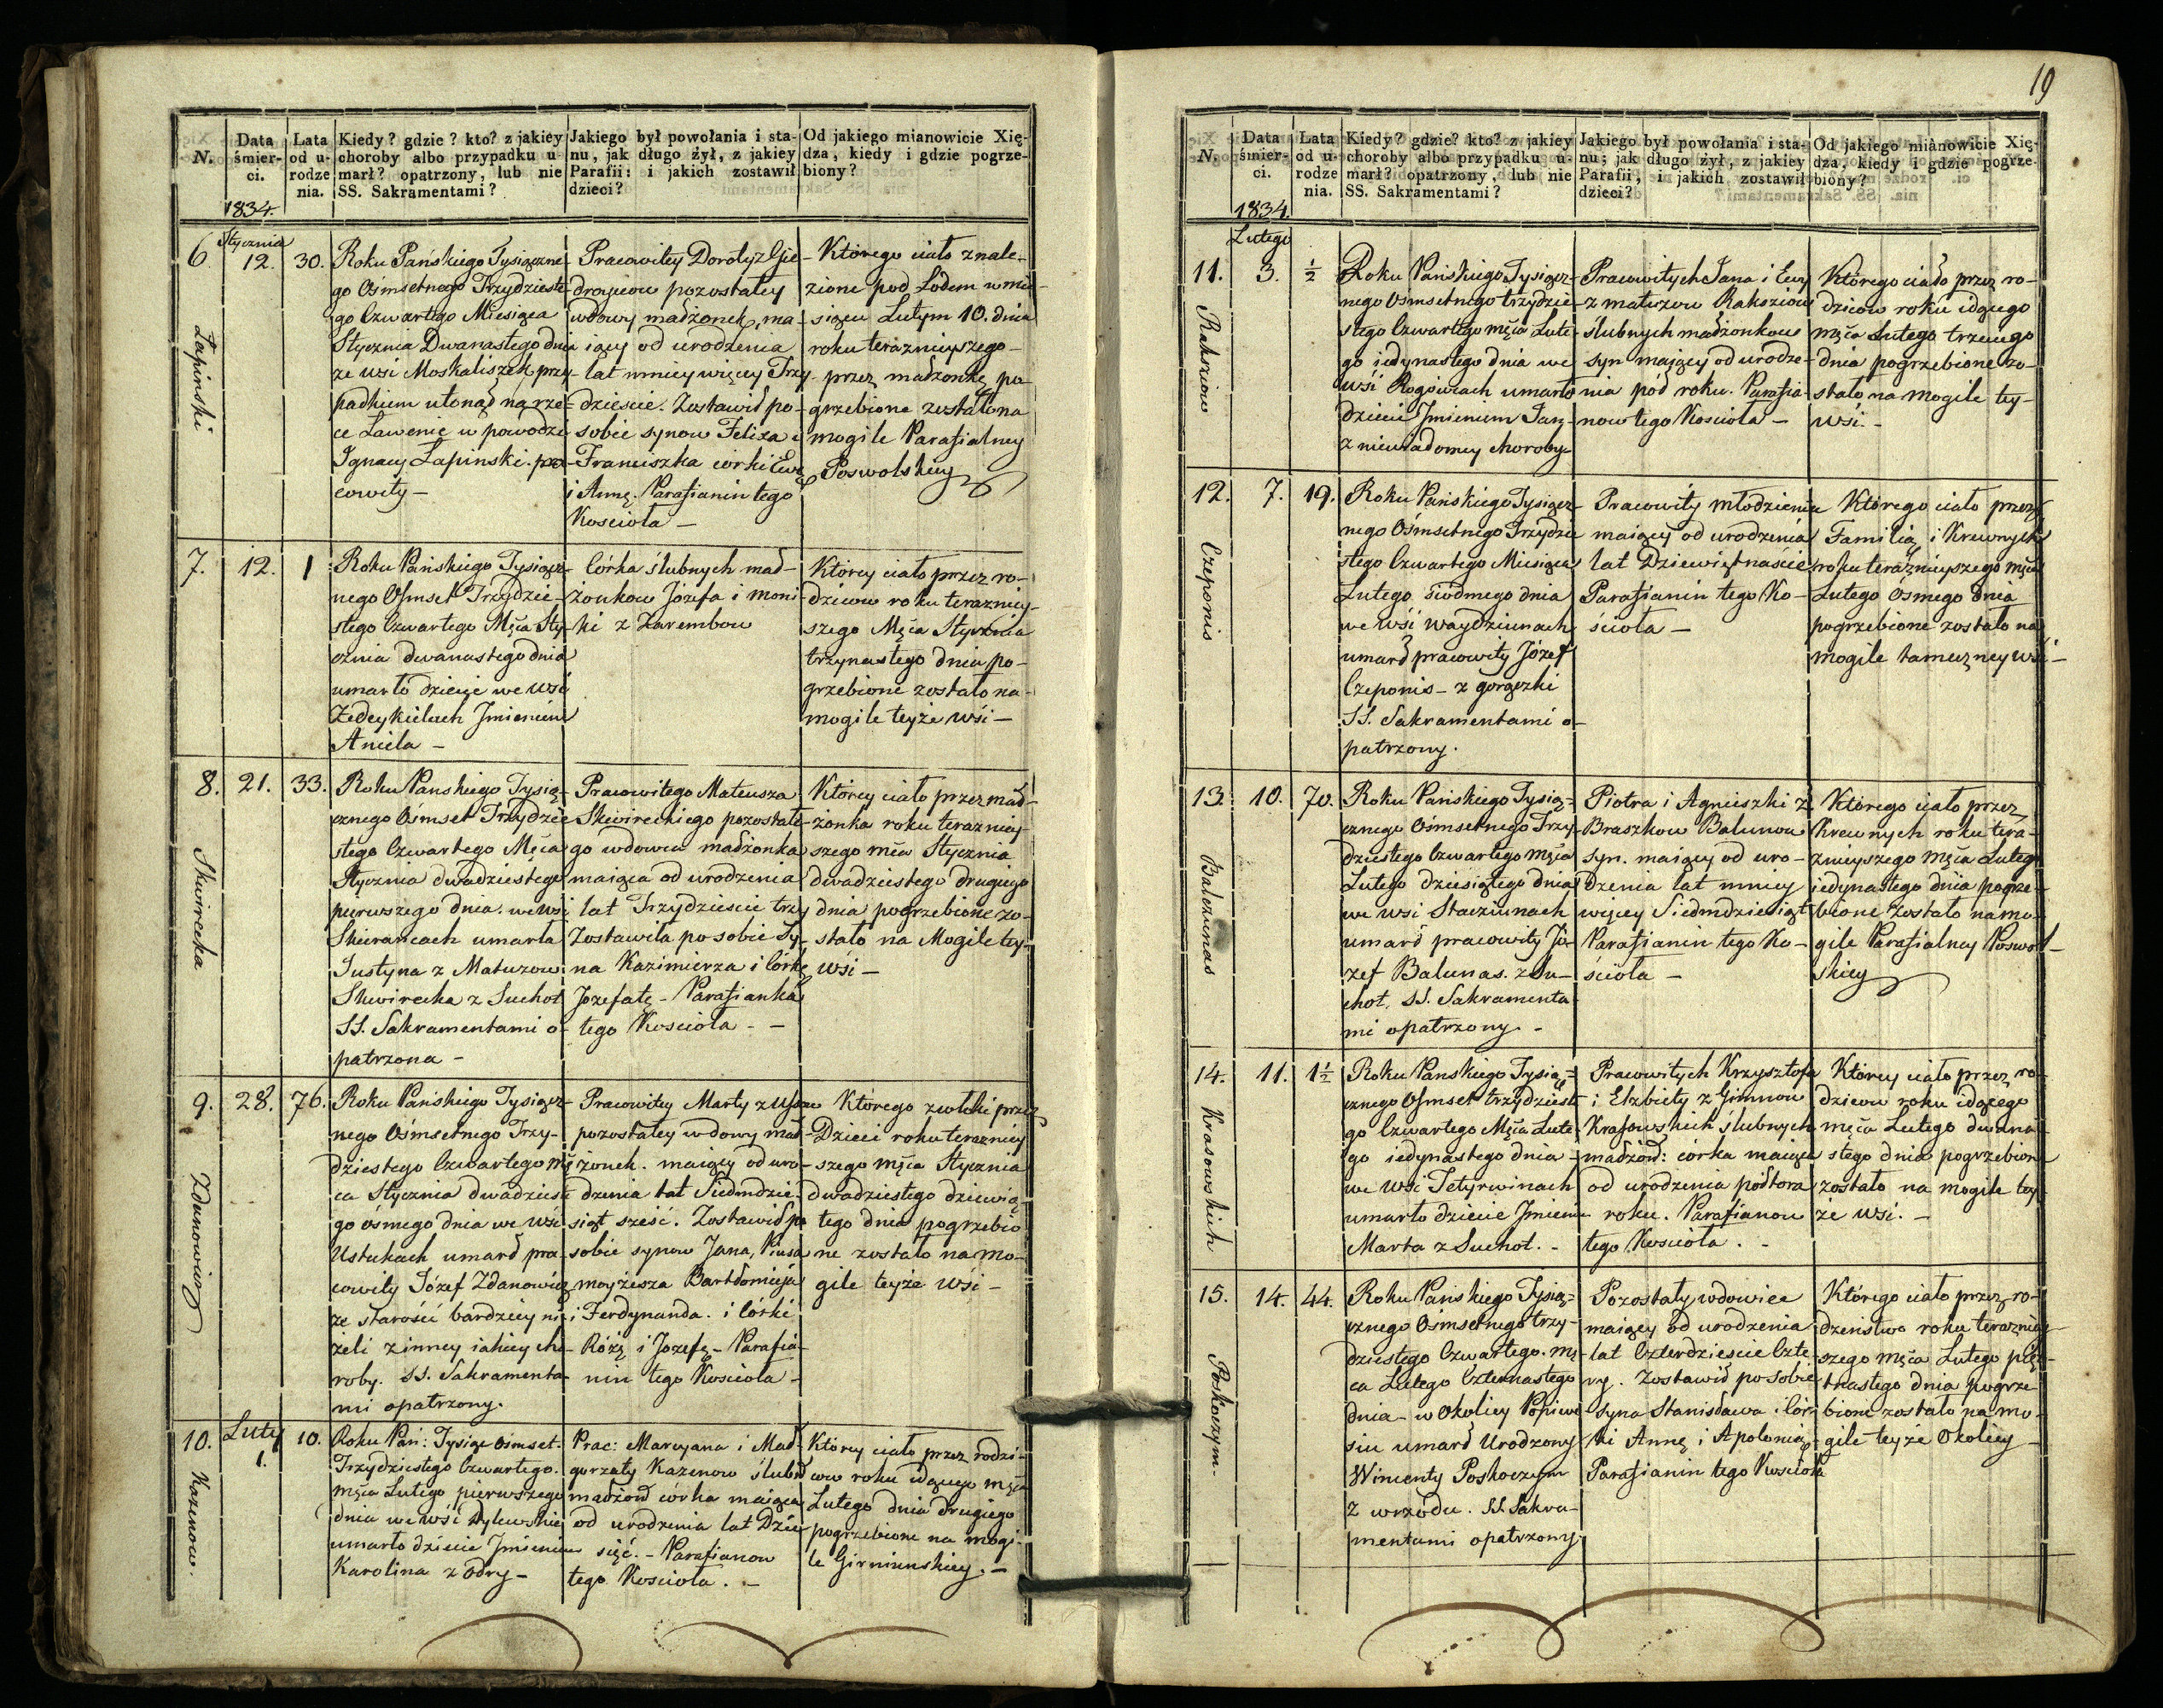 19
N.
Data
śmier-
ci.
1834.
Lata
od u-
rodze
nia.
Kiedy? gdzie? kto? z jakiey
choroby albo przypadku u-
marł? opatrzony, lub nie
SS. Sakramentami?
Jakiego był powołania i sta-
nu, jak długo żył, z jakiey
Parafii: i jakich zostawił
dzieci?
Od jakiego mianowicie Xię-
dza, kiedy i gdzie pogrze-
biony?
6
Łapinski
Stycznia
12.
30.
Roku Pańskiego Tysiączne
go Ośmsetnego Trzydzieste
go Czwartego Miesiąca
Stycznia Dwanastego dnia
ze wsi Moskaliszek przy-
padkiem utonął na rze-
ce Ławenie w powodzi
Ignacy Łapinski pra-
cowity -
Pracowitey Doroty z Gie-
drayciow pozostałey
wdowy małżonek, ma-
iący od urodzenia
lat mniey więcey Trzy-
dzieście. Zostawił po
sobie synow Felixa i
Franciszka corki Ewę
i Annę. Parafianin tego
Kosciola -
Którego ciało znale-
zione pod Lodem w mie-
siącu Lutym 10. dnia
roku teraznieyszego -
przez małżonkę po-
grzebione zostało na
mogile Parafialney
Poswolskiey
7.
12.
1
Roku Pańskiego Tysiącz-
nego Osmset Trzydzie-
stego Czwartego Mca Sty-
cznia dwanastego dnia
umarło dziecię we wsi
Zedeykielach Imieniem
Aniela -
Córka ślubnych mał-
żonkow Józefa i Moni-
ki z Zarembow
Którey ciało przez ro-
dzicow roku terazniey-
szego Mca Stycznia
trzynastego dnia po-
grzebione zostało na
mogile teyże wśi -
8.
Skwirecka
21.
33.
Roku Panskiego Tysią-
cznego Ośmset Trzydzie
stego Czwartego Mca
Stycznia dwadziestego
pierwszego dnia. we wsi
Skierancach umarła
Justyna z Matuzow
Skwirecka z Suchot
SS. Sakramentami o-
patrzona -
Pracowitego Mateusza
Skwireckiego pozostałe-
go wdowca małżonka
maiąca od urodzenia
lat Trzydzieście trzy
Zostawiła po sobie Sy-
na Kazimierza i Córkę
Jozefatę - Parafianka
tego Kosciola - -
Którey ciało przez mał-
żonka roku terazniey-
szego mca Stycznia
dwadziestego drugiego
dnia pogrzebione zo-
stało na Mogile tey-
wśi -
9.
Zdanowicz
28.
76.
Roku Pańskiego Tysiącz-
nego Ośmsetnego Trzy-
dziestego Czwartego mię
ca Stycznia dwadzieste
go ósmego dnia we wśi
Ustukach umarł pra-
cowity Józef Zdanowicz
ze starości bardziey ni-
żeli z inney iakiey cho-
roby. SS. Sakramenta-
mi opatrzony.
Pracowitey Marty z
pozostałey wdowy mał-
żonek. maiący od uro-
dzenia lat Siedmdzie-
siąt sześć. Zostawił po
sobie synow Jana, Piusa
moyżesza Bartłomieja
i Ferdynanda. i Córki
Różę i Jozefę - Parafia-
nin tego Kosciola -
Którego zwłoki przez
Dzieci roku terazniey
szego mca Stycznia
dwadziestego dziewią-
tego dnia pogrzebio
ne zostało na mo-
gile teyże wśi -
10.
Kazenow.
Luty
1.
10.
Roku Pań: Tysiąc ośmset.
Trzydziestego Czwartego.
mca Lutego pierwszego
dnia we wśi Dylewskie
umarło dziecie Imieniem
Karolina z Odry -
Prac: Maryana i Mał-
gorzaty Kazenow ślub
małżon córka maiąca
od urodzenia lat Dzie
sięć. - Parafianow
tego Kosciola. -
Którey ciało przez rodzi-
cow roku idącego mca
Lutego dnia drugiego
pogrzebione na mogi-
le Girniunskiey. -
N.
Data
śmier-
ci.
1834.
Lata
od u-
rodze
nia.
Kiedy? gdzie? kto? z jakiey
choroby albo przypadku u-
marł? opatrzony, lub nie
SS. Sakramentami?
Jakiego był powołania i sta-
nu; jak długo żył, z jakiey
Parafii, i jakich zostawił
dzieci?
Od jakiego mianowicie Xię-
dza, kiedy i gdzie pogrze-
biony?
11.
Rakeziow
Lutego
3.
½
Roku Pańskiego Tysiącz-
nego Ośmsetnego trzydzie-
stego Czwartego mca Lute-
go iedynastego dnia we
wśi Rogowcach umarło
dziecie Imieniem Jan
z niewiadomey choroby
Pracowitych Jana i Ewy
z matuzow Rakeziow
ślubnych małżonkow
syn maiący od urodze-
nia pół roku. Parafia-
now tego Kosciola -
Którego ciało przez ro-
dzicow roku idącego
mca Lutego trzeciego
dnia pogrzebione zo-
stało na mogile tey-
wśi. -
12.
Czeponis
7.
19.
Roku Pańskiego Tysiącz-
nego Ośmsetnego Trzydzie
stego Czwartego Miesiąca
Lutego siódmego dnia
we wśi Waydziunach
umarł pracowity Józef
Czeponis - z gorączki
SS. Sakramentami o-
patrzony.
Pracowity młodzieniec
maiący od urodzenia
lat Dziewiętnaście
Parafianin tego Ko-
sciola -
Którego ciało przez
Familią i Krewnych
roku teraznieyszego mca
Lutego Ósmego dnia
pogrzebione zostało na
mogile tameczney wśi -
13.
Balczunas
10.
70.
Roku Pańskiego Tysią-
cznego Ośmsetnego Trzy-
dziestego Czwartego mca
Lutego dziesiątego dnia
we wsi Staciunach
umarł pracowity Jó-
zef Balunas. z Su-
chot. SS. Sakramenta-
mi opatrzony. -
Piotra i Agnieszki z
Braszkow Balunow
syn. maiący od uro-
dzenia lat mniey
więcey Siedmdziesiąt
Parafianin tego Ko-
ściola -
Którego ciało przez
Krewnych roku tera-
znieyszego mca Lutego
iedynastego dnia pogrze-
bione zostało na mo-
gile Parafialney Poswol-
skiey
14.
Krasowskich
11.
1½
Roku Panskiego Tysią-
cznego Osmset trzydzieste
go Czwartego Mca Lute-
go iedynastego dnia -
we wsi Tetyrwinach
umarło dziecie Imieniem
Marta z Suchot. -
Pracowitych Krzysztofa
i Elzbiety z Gimnow
Krasowskich ślubnych
małżon: córka maiąca
od urodzenia półtora
roku. Parafianow
tego Kosciola. -
Którey ciało przez ro-
dzicow roku idącego
mca Lutego dwuna-
stego dnia pogrzebione
zostało na mogile tey-
że wsi. -
15.
Poskoczym-
14.
44.
Roku Pańskiego Tysią-
cznego Ośmsetnego trzy-
dziestego Czwartego. mę-
ca Lutego Czternastego
dnia - w Okolicy Popiwe
siu umarł Urodzony
Wincenty Poskoczym
z wrzodu. SS. Sakra-
mentami opatrzony
Pozostały wdowiec
maiący od urodzenia
lat Czterdzieście Czte-
ry. Zostawił po sobie
syna Stanisława i Cór-
ki Annę i Apolonię
Parafianin tego Kosciola
Którego ciało przez ro-
dzeństwo roku terazniey-
szego mca Lutego pięt-
nastego dnia pogrze-
bione zostało na mo-
gile teyże Okolicy -